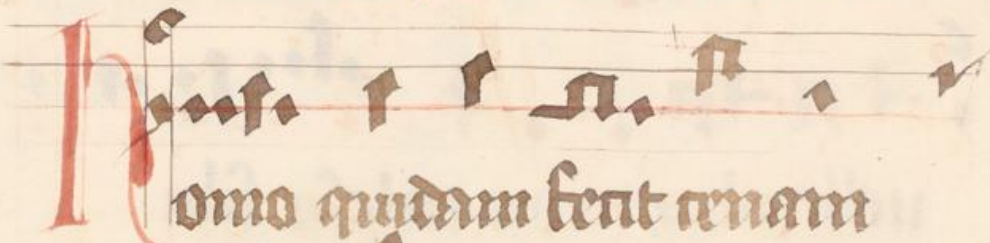 Homo quidam fecit cenam